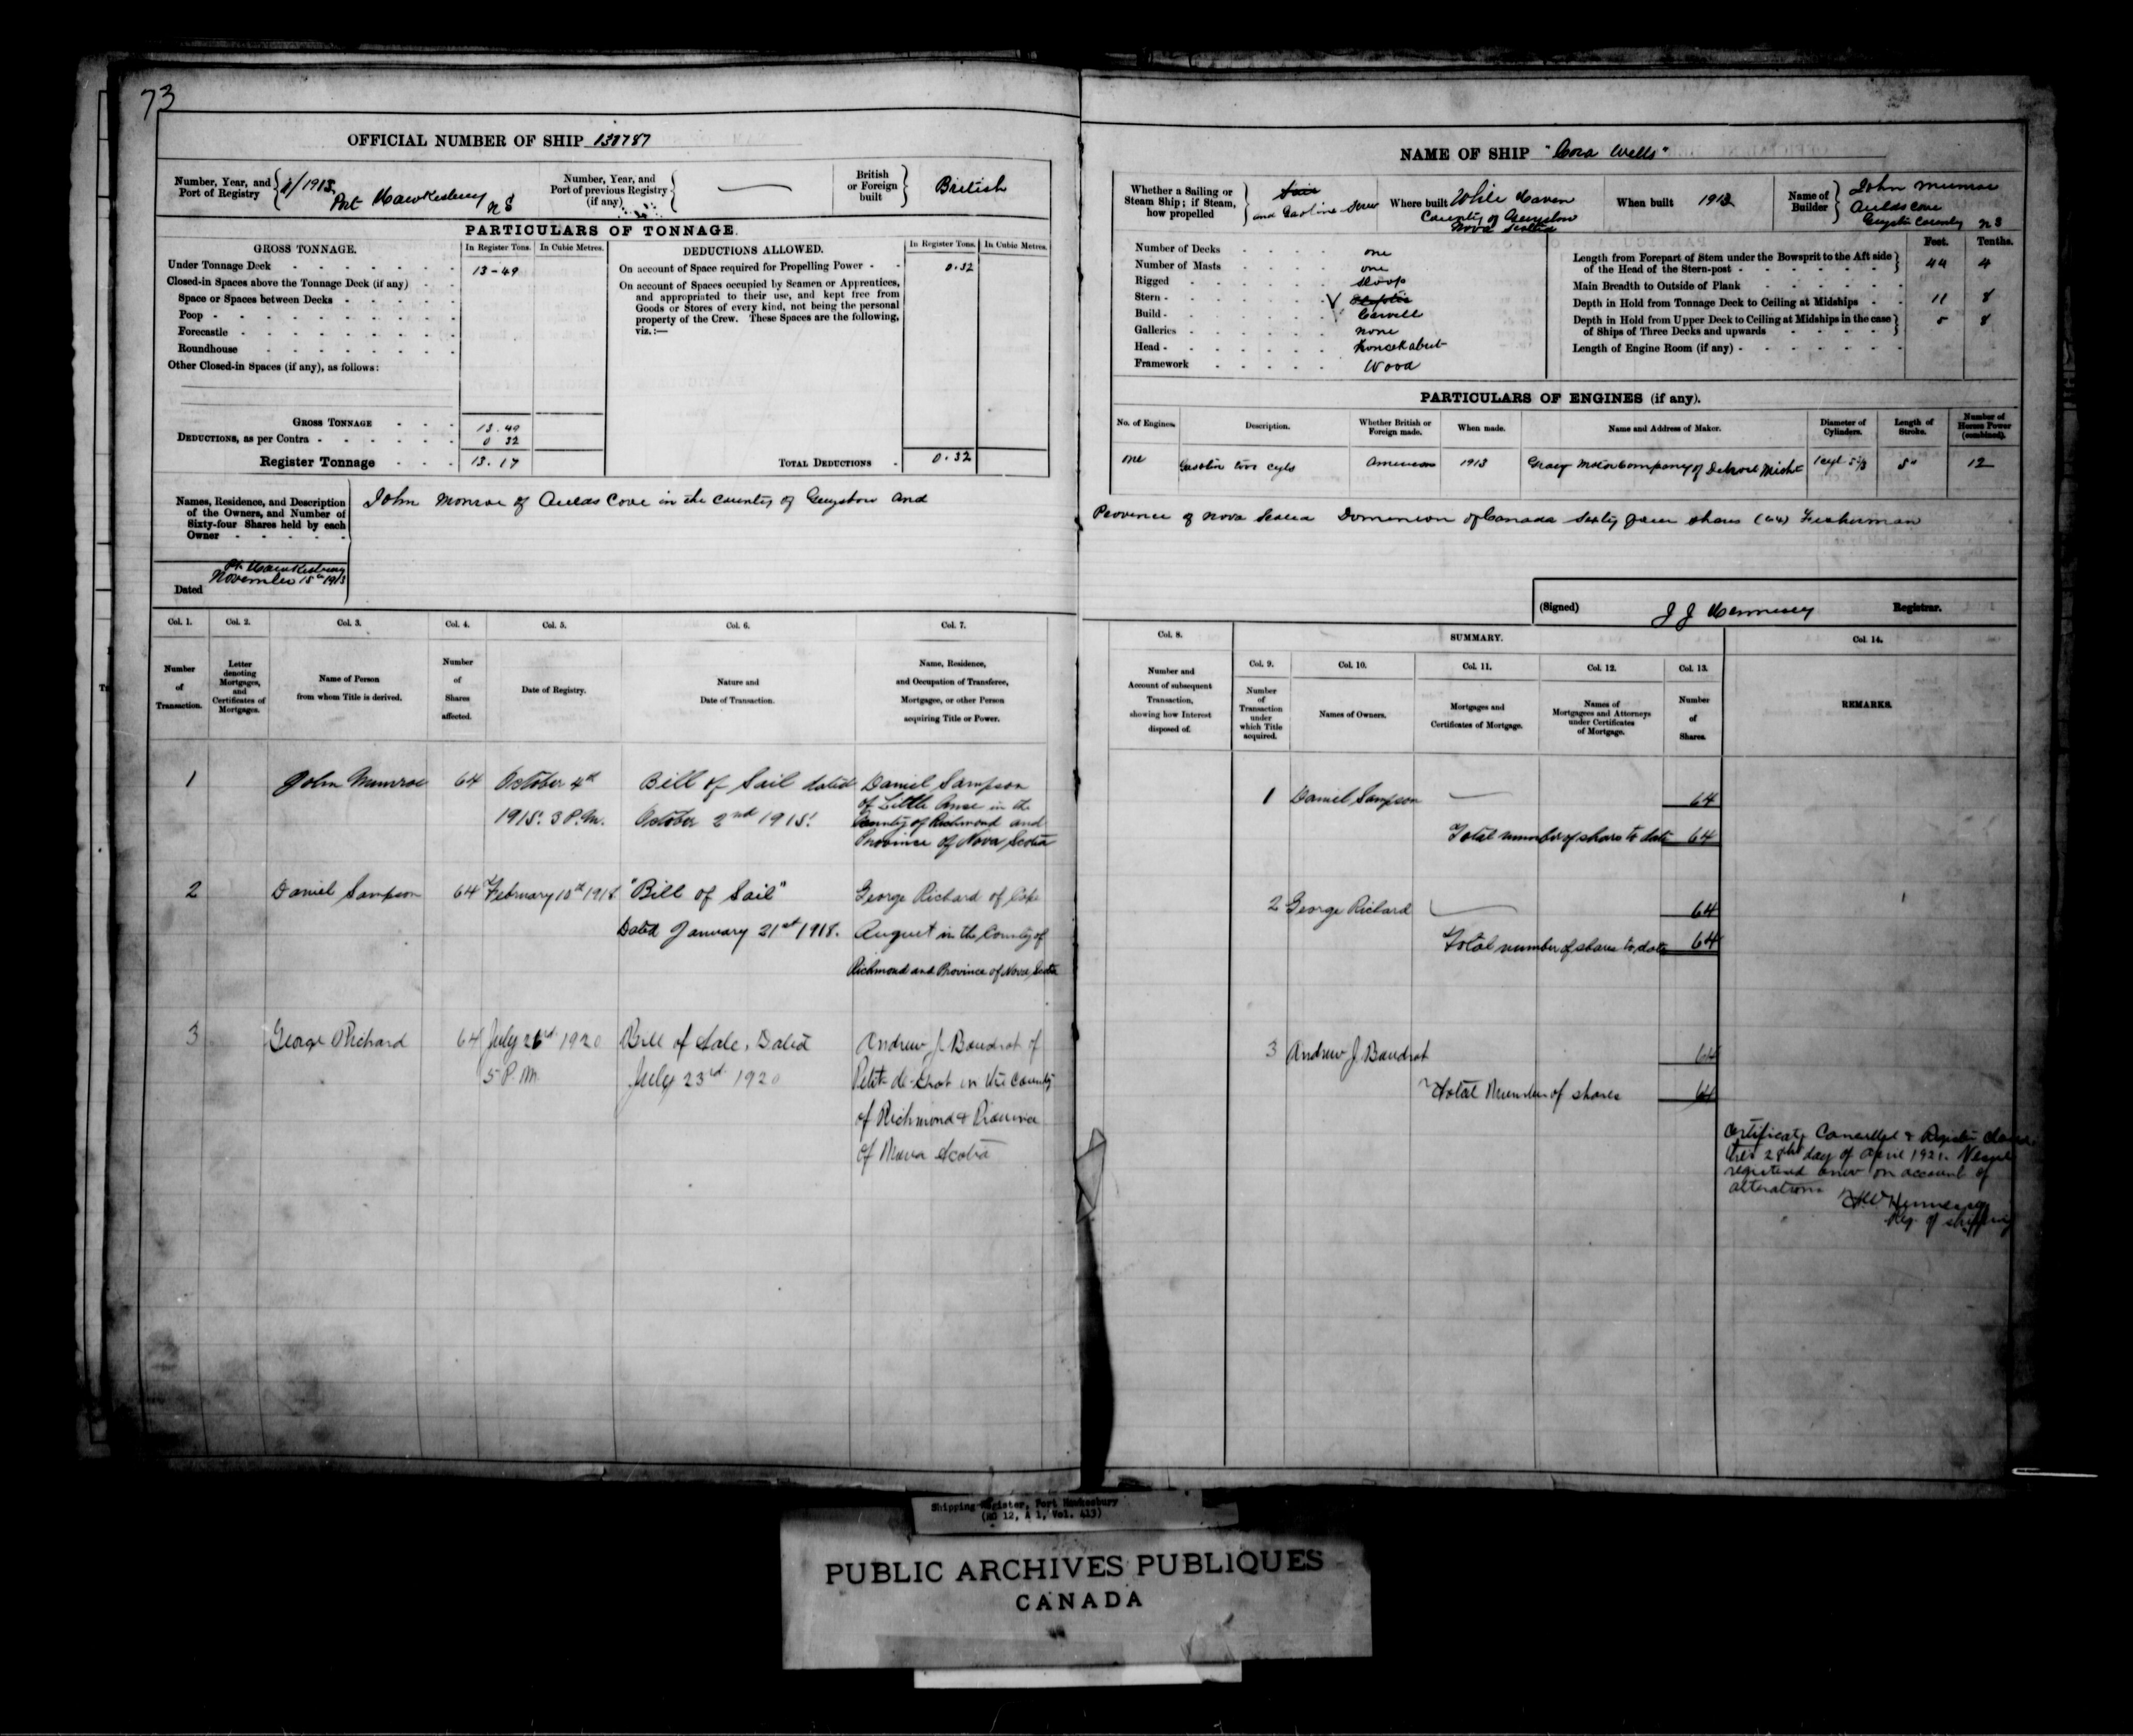 73
OFFICIAL NUMBER OF SHIP 130787
Number, Year, and Port of Registry /1913. Port Hawkesbury N S
Number, Year, and Port of previous Registry (if any)
British or Foreign built British
PARTICULARS OF TONNAGE.
GROSS TONNAGE. In Register Tons. In Cubic Metres. DEDUCTIONS ALLOWED. In Register Tons. In Cubic Metres.
Under Tonnage Deck 13-49
On account of Space required for Propelling Power 0.32
Closed-in Spaces above the Tonnage Deck (if any)
Space or Spaces between Decks
Poop
Forecastle
Roundhouse
Other Closed-in Spaces (if any), as follows:
On account of Spaces occupied by Seamen or Apprentices,
and appropriated to their use, and kept free from
Goods or Stores of every kind, not being the personal
property of the Crew. These Spaces are the following,
viz.:—
GROSS TONNAGE 13.49
DEDUCTIONS, as per Contra 0 32
Register Tonnage 13.17
TOTAL DEDUCTIONS 0.32
Names, Residence, and Description
of the Owners, and Number of
Sixty-four Shares held by each
Owner
John Monroe of Aulds Cove in the County of Guysboro and
Dated Pt. Hawkesbury
November 15th 1913
Col. 1. Col. 2. Col. 3. Col. 4. Col. 5. Col. 6. Col. 7.
Number of Transaction.
Letter denoting Mortgages, and Certificates of Mortgages.
Name of Person from whom Title is derived.
Number of Shares affected.
Date of Registry.
Nature and Date of Transaction.
Name, Residence, and Occupation of Transferee, Mortgagee, or other Person acquiring Title or Power.
1 John Munroe 64 October 4th Bill of Sail dated Daniel Sampson
of Little Anse in the
1915. 3 P.M. October 2nd 1915. County of Richmond and
Province of Nova Scotia
2 Daniel Sampson 64 February 15th 1918. "Bill of Sail" George Richard of Cape
Dated January 21st 1918. August in the County of
Richmond and Province of Nova Scotia
3 George Richard 64 July 26rd 1920 Bill of Sale, Dated Andrew J. Boudrot of
5 P.M. July 23rd 1920 Petit-de-Grat in the County
of Richmond & Province
of Nova Scotia
NAME OF SHIP "Cora Wells"
Whether a Sailing or Steam Ship; if Steam, how propelled
and Gasoline Screw
Where built White Haven
County of Guysboro
Nova Scotia
When built 1913
Name of Builder John Munroe
Aulds Cove
Guysboro County N S
Number of Decks one
Number of Masts one
Rigged Sloop
Stern
Build Carvell
Galleries none
Head
Framework Wood
Feet. Tenths.
Length from Forepart of Stem under the Bowsprit to the Aft side
of the Head of the Stern-post 44 4
Main Breadth to Outside of Plank
Depth in Hold from Tonnage Deck to Ceiling at Midships 11 8
Depth in Hold from Upper Deck to Ceiling at Midships in the case
of Ships of Three Decks and upwards 5 8
Length of Engine Room (if any)
PARTICULARS OF ENGINES (if any).
No. of Engines. Description. Whether British or Foreign made. When made. Name and Address of Maker. Diameter of Cylinders. Length of Stroke. Number of Horses Power (combined).
one Gasoline two cyls American 1913 Gray Motor Company of Detroit Mich 5" 12
Province of Nova Scotia Dominion of Canada Sixty four shares (64) Fisherman
(Signed) J J Hennessy Registrar.
Col. 8. SUMMARY. Col. 14.
Col. 9. Col. 10. Col. 11. Col. 12. Col. 13.
Number and Account of subsequent Transaction, showing how Interest disposed of.
Number of Transaction under which Title acquired.
Names of Owners.
Mortgages and Certificates of Mortgage.
Names of Mortgagees and Attorneys under Certificates of Mortgage.
Number of Shares.
REMARKS.
1 Daniel Sampson 64
Total number of shares to date 64
2 George Richard 64
Total number of shares to date 64
3 Andrew J. Boudrot 64
Total Number of shares 64
Certificate Cancelled & Register closed
this 28th day of April 1921. Vessel
registered anew on account of
alterations
Hennessy
Reg. of shipping
Shipping Register, Port Hawkesbury
(RG 12, A 1, Vol. 413)
PUBLIC ARCHIVES PUBLIQUES
CANADA